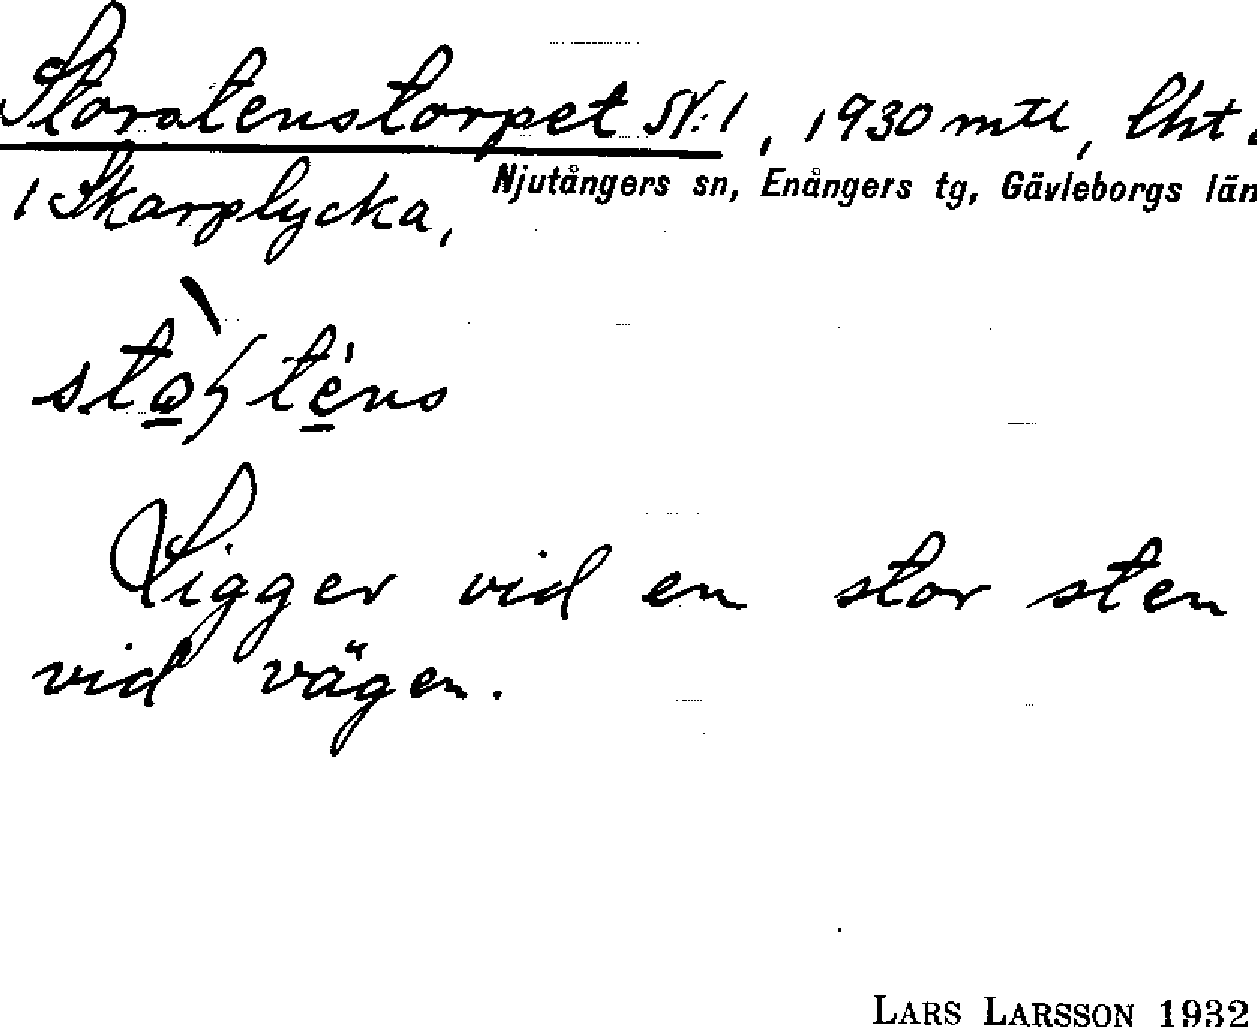 Storstenstorpet N:1, 1930 mtl, lht.
1 Skarplycka,
Njutångers sn, Enångers tg, Gävleborgs län
Ligger vid en stor sten
vid vägen.
LARS LARSSON 1932